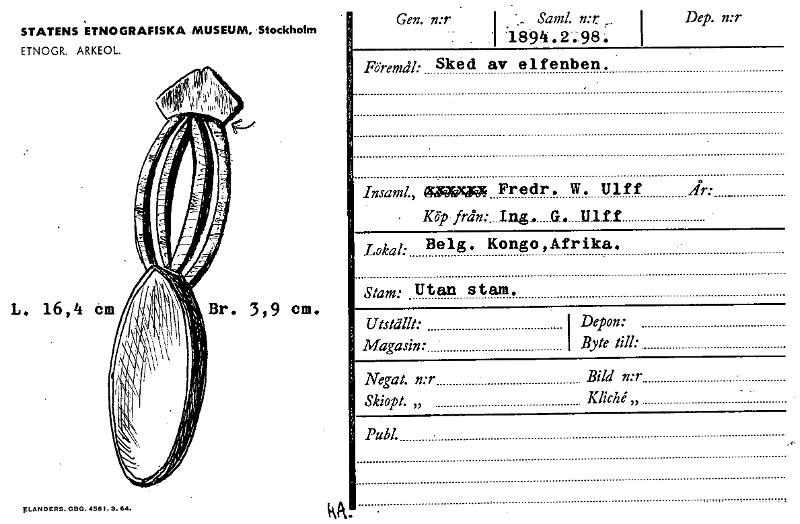 STATENS ETNOGRAFISKA MUSEUM, Stockholm
ETNOGR. ARKEOL.
L. 16,4 cm Br. 3,9 cm.
FLANDERS. GBG. 4561. 3. 64.
Gen. n:r Saml. n:r Dep. n:r
1894.2.98.
Föremål: Sked av elfenben.
Insaml., Fredr. W. Ulff År:
Köp från: Ing. G. Ulff
Lokal: Belg. Kongo,Afrika.
Stam: Utan stam.
Utställt: Depon:
Magasin: Byte till:
Negat. n:r Bild n:r
Skiopt. „ Kliché „
Publ.
HA.